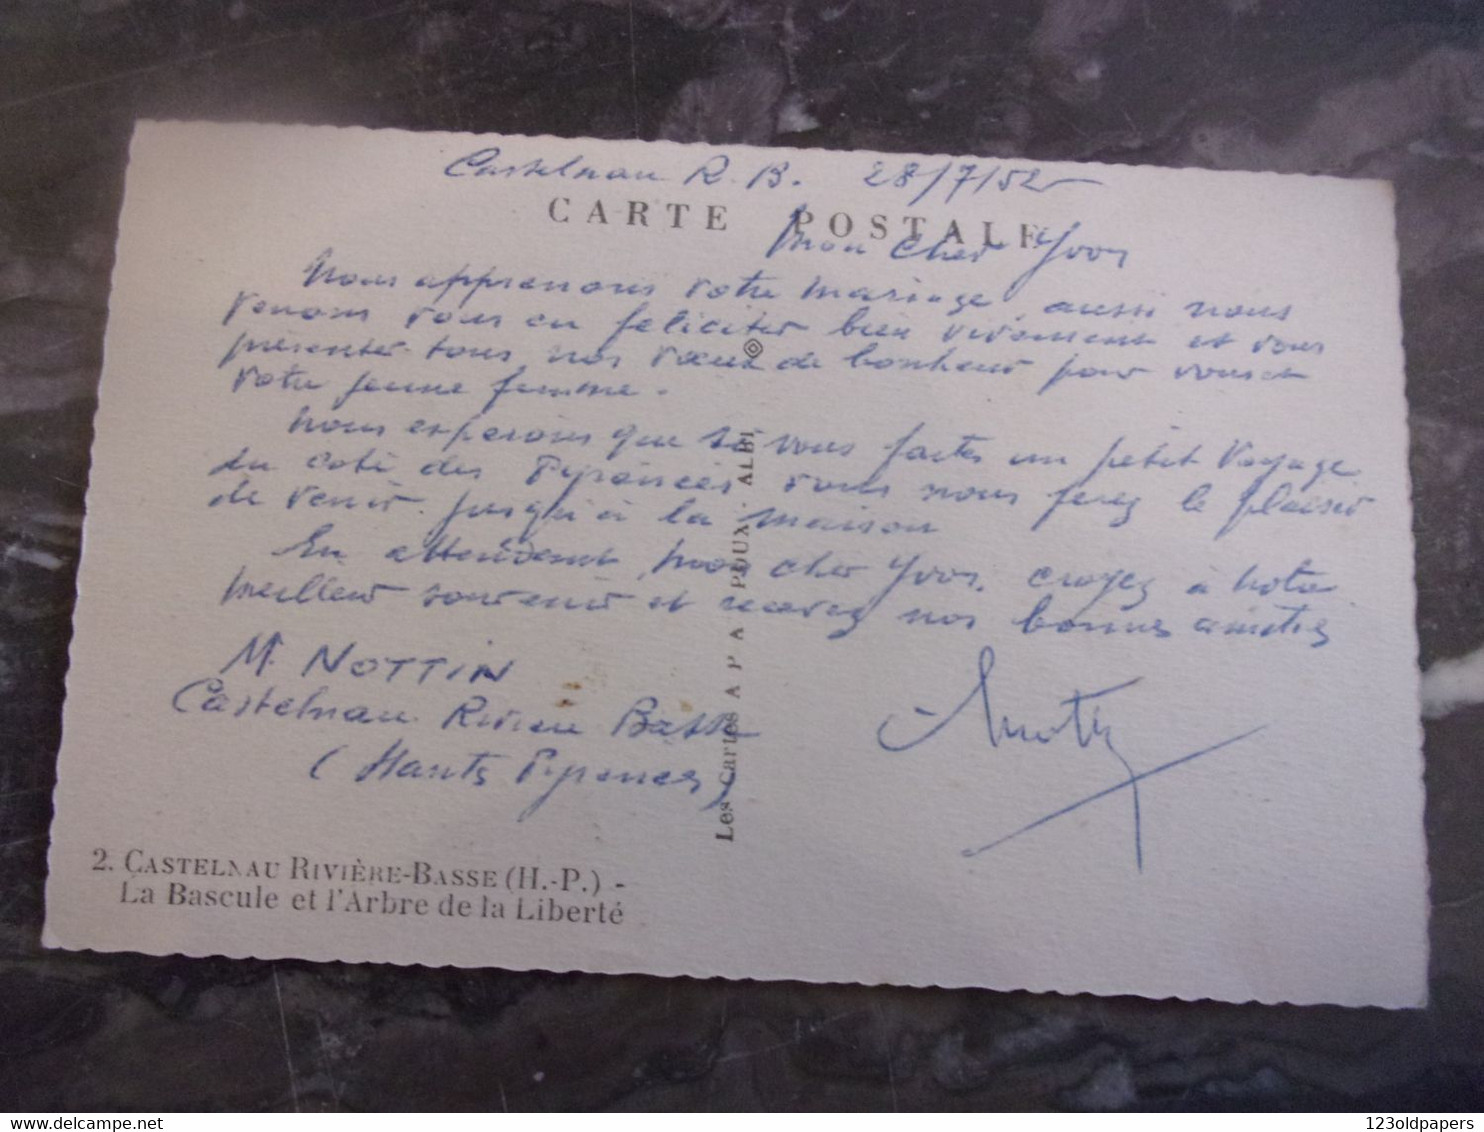 Castelnau R. B. 28/7/52
CARTE POSTALE
Mon cher Yvon
Nous apprenons votre mariage, aussi nous
venons vous en féliciter bien vivement et vous
présenter tous nos vœux de bonheur pour vous et
votre jeune femme.
Nous espérons que si vous faites un petit voyage
du coté des Pyrénées vous nous ferez le plaisir
de venir jusqu'à la maison
En attendant, mon cher Yvon, croyez à notre
meilleur souvenir et recevez nos bonnes amitiés
M. NOTTIN
Castelnau Rivière Basse
(Hauts Pyrenees)
Les Cartes APA POUX - ALBI
2. CASTELNAU RIVIÈRE-BASSE (H.-P.) -
La Bascule et l'Arbre de la Liberté
123oldpapers